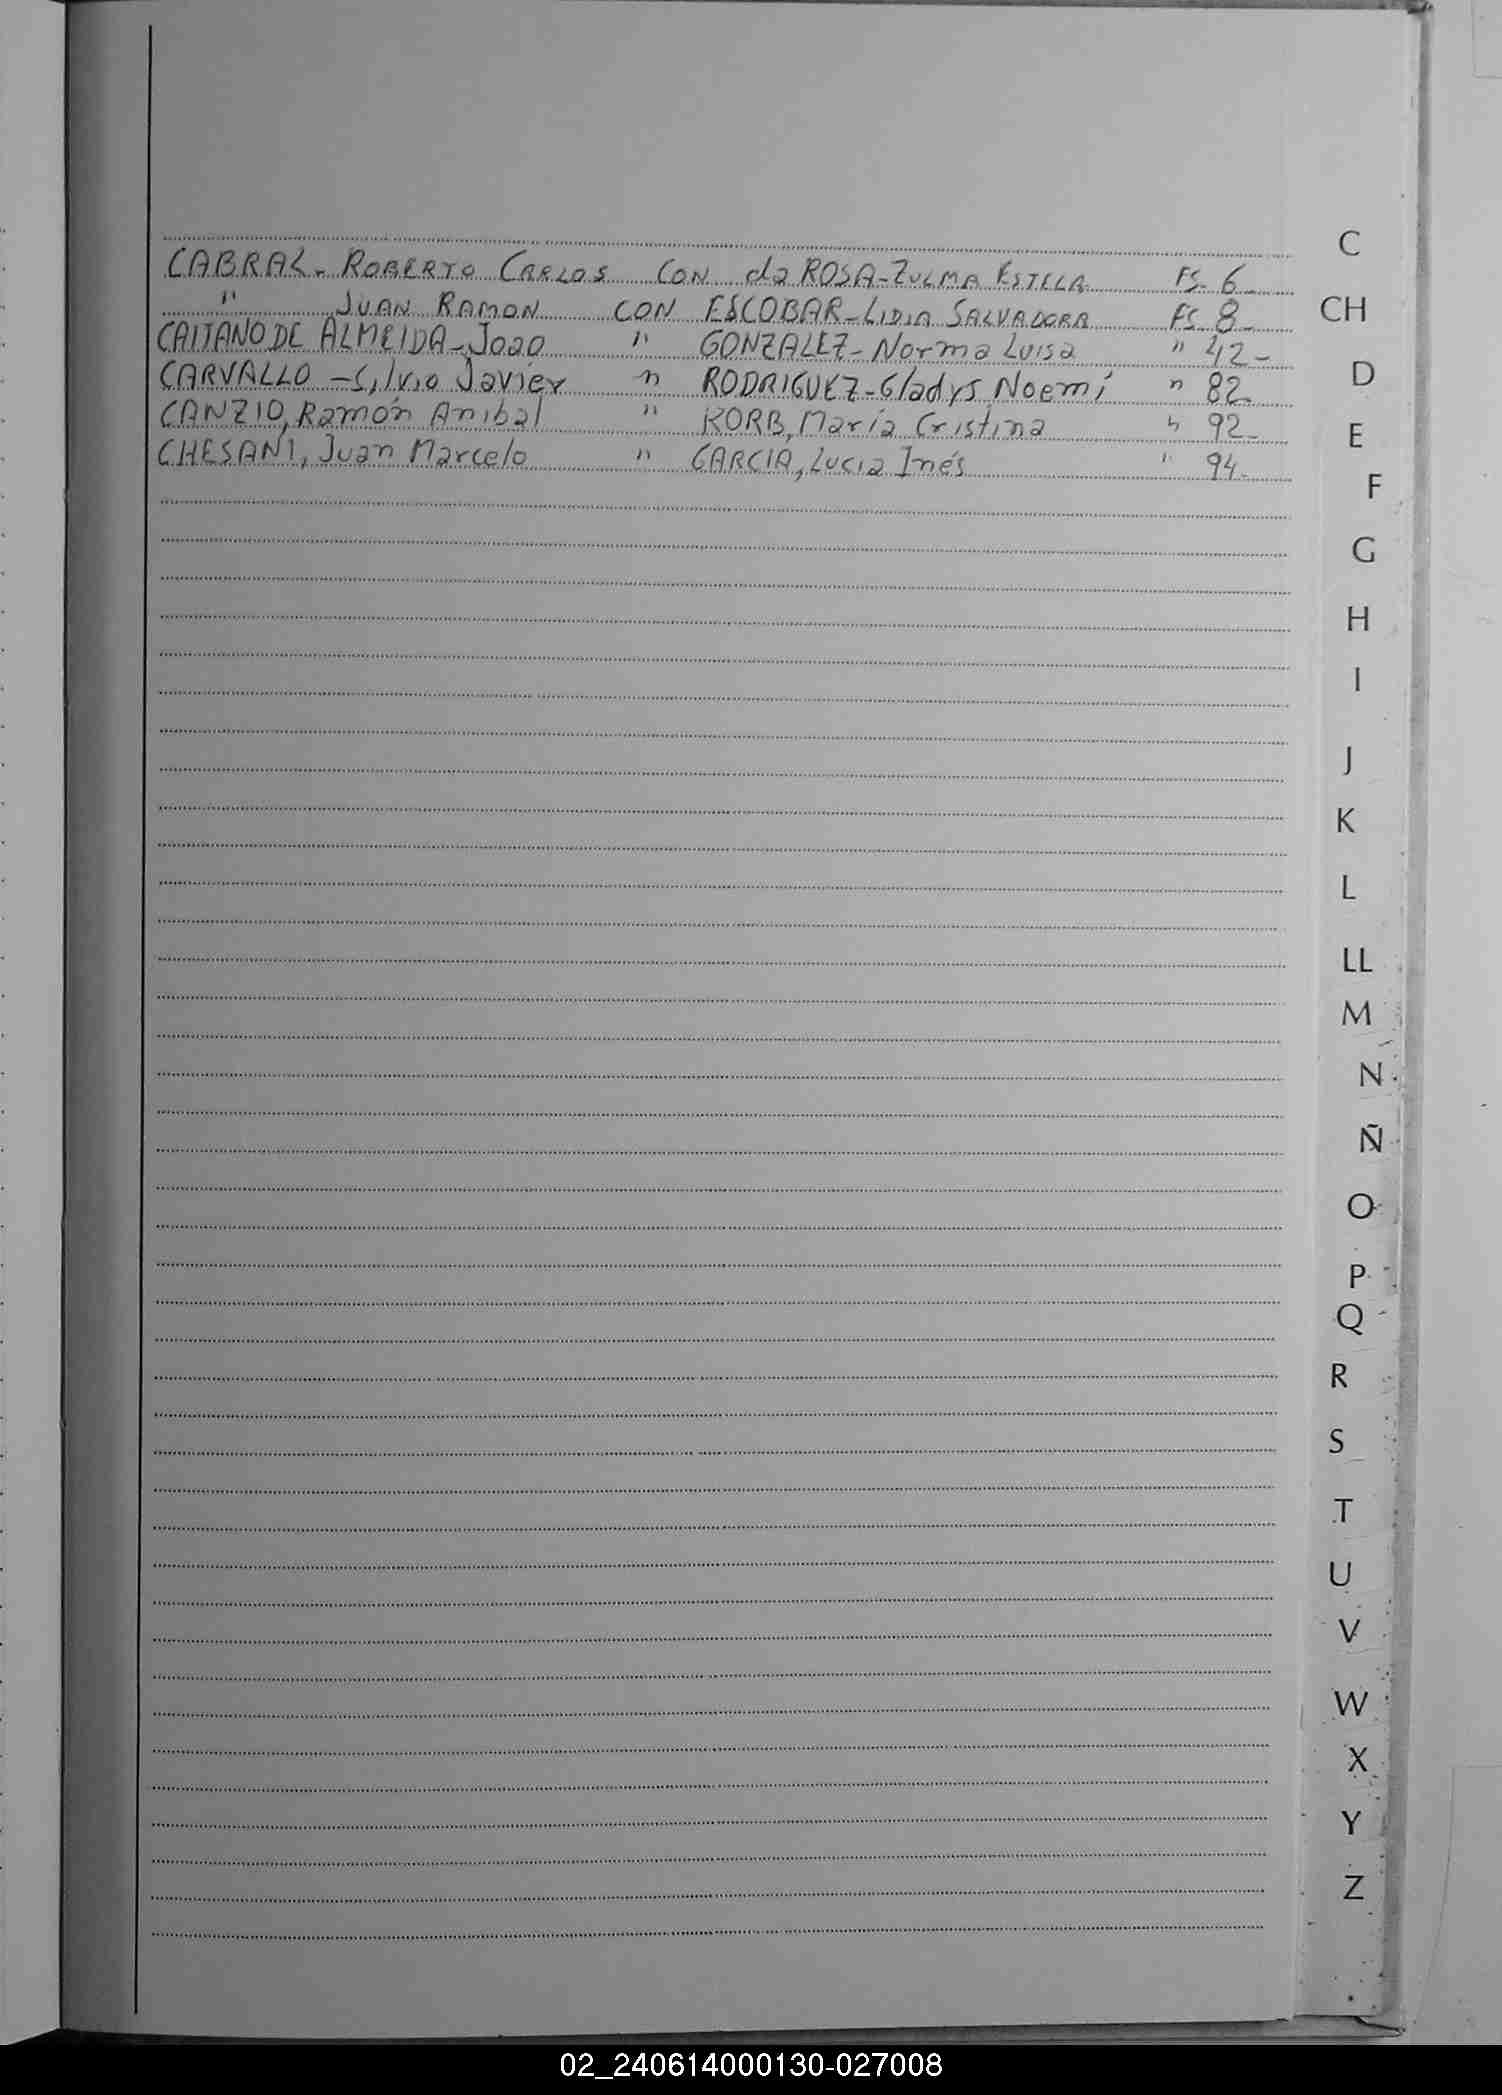 CABRAL. ROBERTO CARLOS CON da ROSA-ZULMA ESTELA FS. 6
" JUAN RAMON CON ESCOBAR-LIDIA SALVADORA FS. 8-
CAITANO DE ALMEIDA-Joao " GONZALEZ-Norma Luisa " 42-
CARVALLO -Silvio Javier " RODRIGUEZ-Gladys Noemí " 82
CANZIO, Ramón Anibal " KORB, María Cristina " 92-
CHESANI, Juan Marcelo " GARCIA, Lucia Inés " 94-
C
CH
D
E
F
G
H
I
J
K
L
LL
M
N
Ñ
O
P
Q
R
S
T
U
V
W
X
Y
Z
02_240614000130-027008